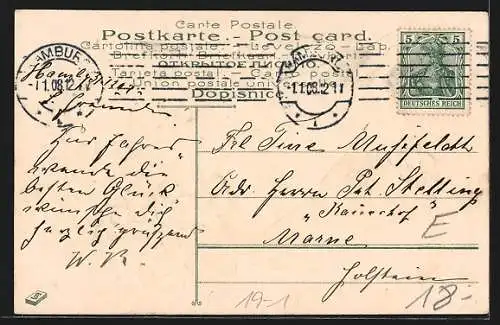 Carte Postale.
Postkarte.- Post card.
Cartolina postale. - Levelező-Lap.
Briefkort - Briefkaart
ОТКРЫТОЕ ПИСЬМО
Tarjeta postal. - Cartão postal
Union postale univ
Dopisnice
HAMBURG
1.1.08.12
HAMBURG
1.1.08.12
5 5
DEUTSCHES REICH
Zur Jahres
wende die
besten Glück
wünsche Dir
herzlich grüssend
W. R.
Frl Tine
Adr. Herrn Pet. Stelling
„Kaiserhof"
Marne
Holstein
E
19-1
18.-